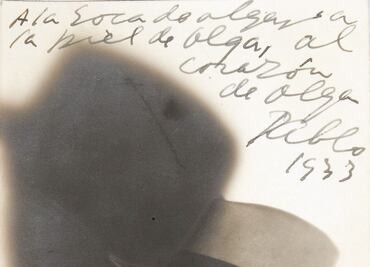 A la boca de olga, a
la piel de Olga, al
corazón
de olga
Pablo
1933